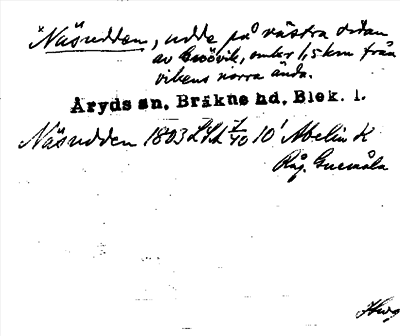 ×Näsudden, udde på västra sidan
av Exövik, omkr 1,5 km från
vikens norra ända.
Åryds sn. Bräkne hd. Blek. l.
Näsudden 1803 LSA 7/40 10' Abelin K
Råg. Guemåla